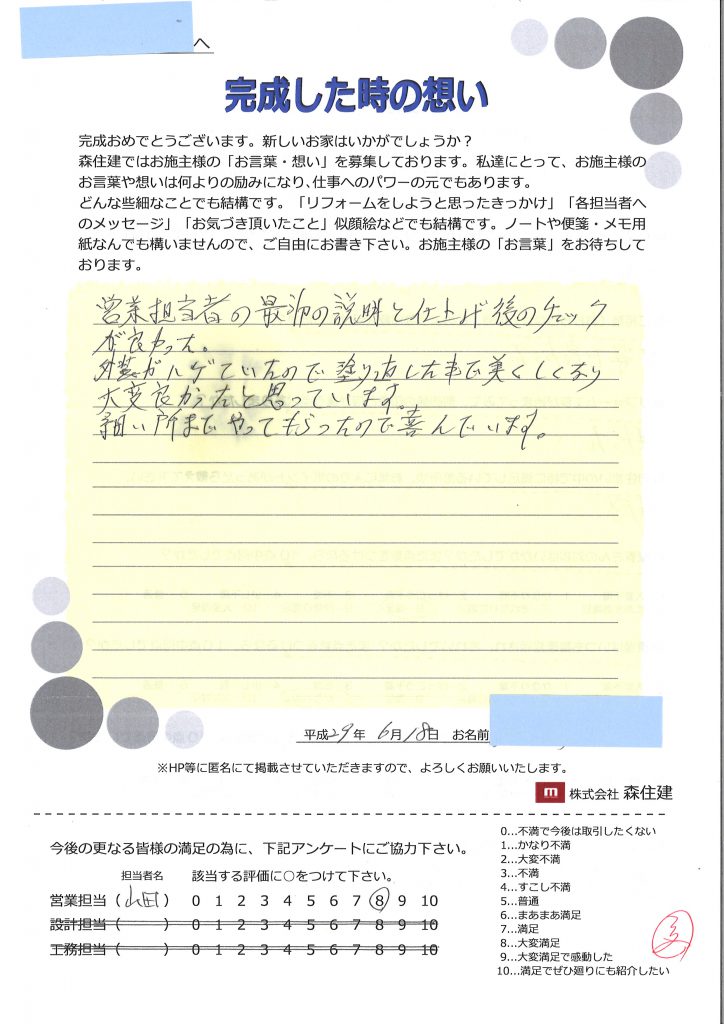 へ
完成した時の想い
完成おめでとうございます。新しいお家はいかがでしょうか？
森住建ではお施主様の「お言葉・想い」を募集しております。私達にとって、お施主様の
お言葉や想いは何よりの励みになり、仕事へのパワーの元でもあります。
どんな些細なことでも結構です。「リフォームをしようと思ったきっかけ」「各担当者へ
のメッセージ」「お気づき頂いたこと」似顔絵などでも結構です。ノートや便箋・メモ用
紙なんでも構いませんので、ご自由にお書き下さい。お施主様の「お言葉」をお待ちして
おります。
営業担当者の最初の説明と仕上げ後のチェック
が良かった。
外装がハゲていたので塗り直した事で美くしくなり
大変良かったと思っています。
細い所までやってもらったので喜んでいます。
平成29年 6月18日 お名前
※HP等に匿名にて掲載させていただきますので、よろしくお願いいたします。
m 株式会社 森住建
今後の更なる皆様の満足の為に、下記アンケートにご協力下さい。
担当者名 該当する評価に○をつけて下さい。
営業担当（山田） 0 1 2 3 4 5 6 7 8 9 10
設計担当（ ） 0 1 2 3 4 5 6 7 8 9 10
工務担当（ ） 0 1 2 3 4 5 6 7 8 9 10
0…不満で今後は取引したくない
1…かなり不満
2…大変不満
3…不満
4…すこし不満
5…普通
6…まあまあ満足
7…満足
8…大変満足
9…大変満足で感動した
10…満足でぜひ廻りにも紹介したい